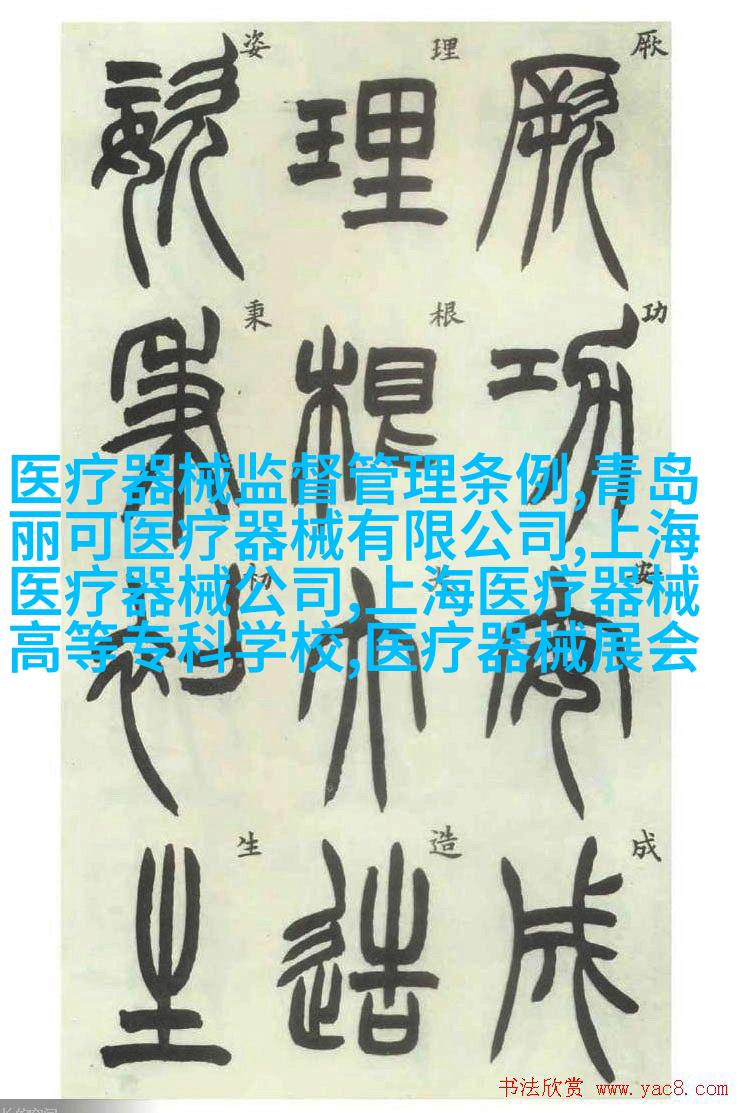 厥功安成
厥功安成
理根亦造
理根造
姿秉初生
姿秉初生
医疗器械监督管理条例,青岛
丽可医疗器械有限公司,上海
医疗器械公司,上海医疗器械
高等专科学校,医疗器械展会
书法欣赏 www.yac8.com